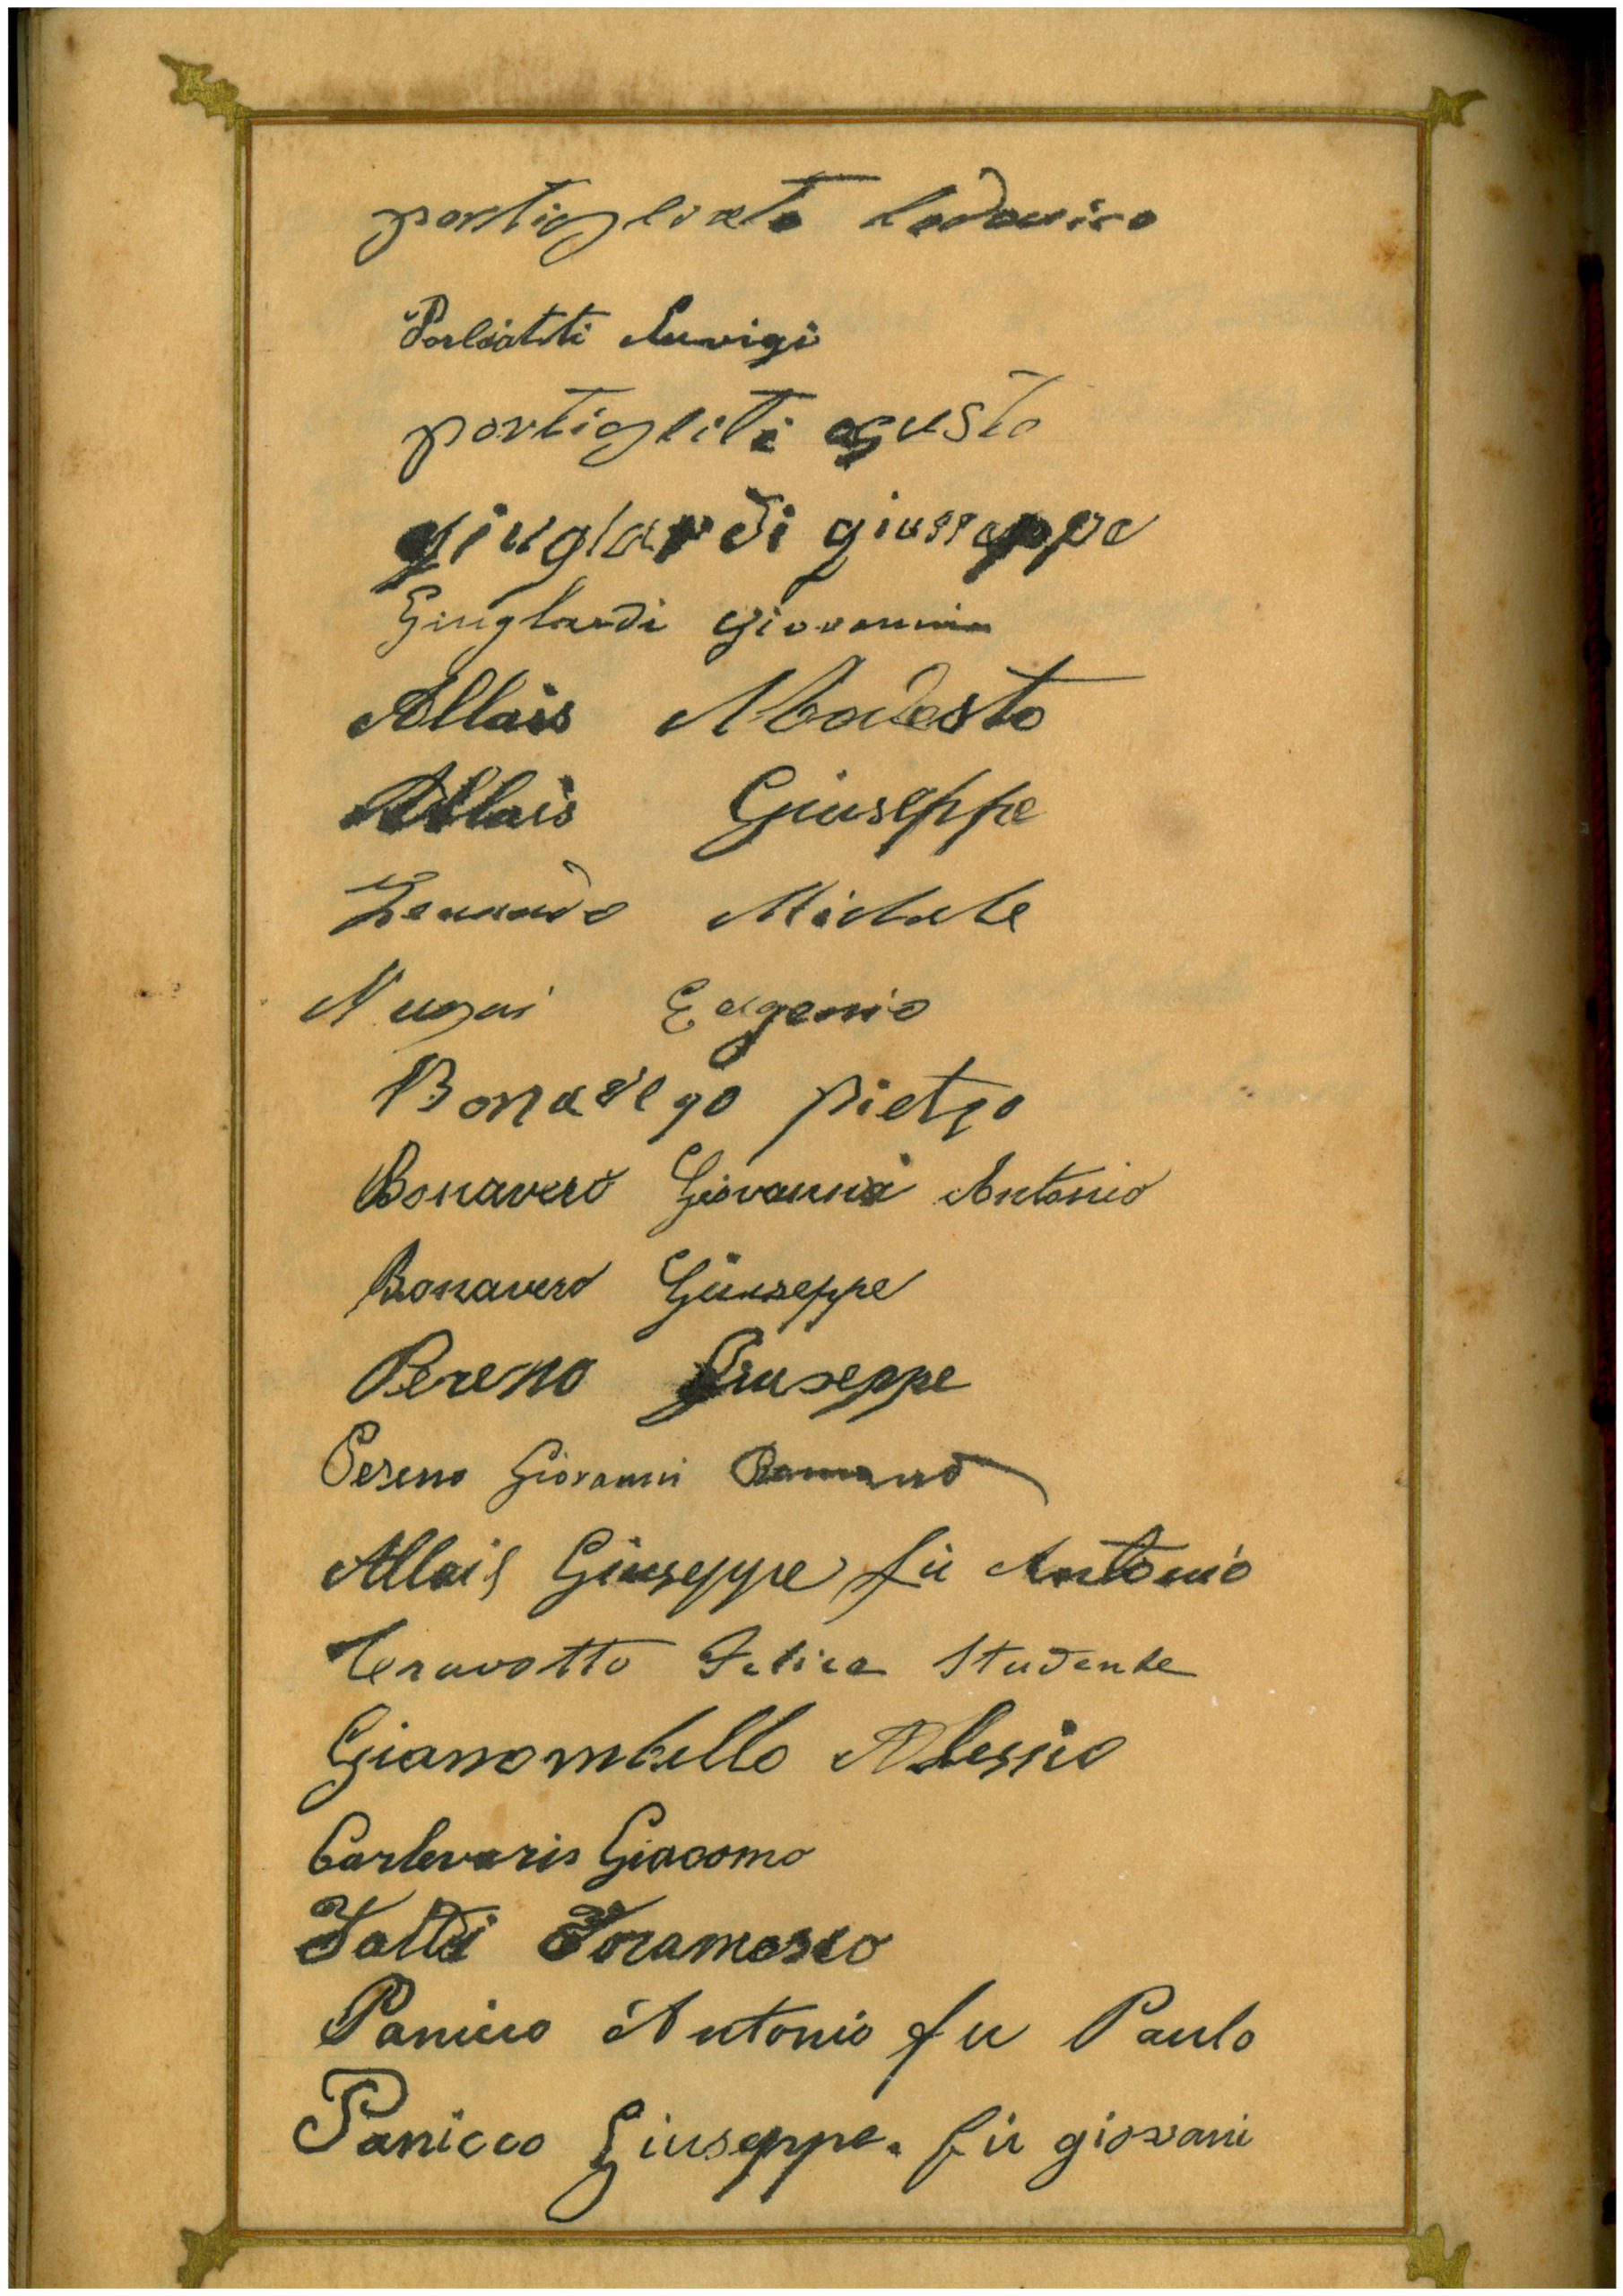 portigliate lodovico
Porliatti Luvigi
portigliti agusto
giuglardi giusseppe
Giuglardi giovanni
Allais Modesto
Allais Giuseppe
Michele
Eugenio
Bonavero pietro
Bonavero Giovanni Antonio
Bonavero Giuseppe
Pereno Giuseppe
Pereno Giovanni Romano
Allais Giuseppe fù Antonio
Cravotto Felice Studente
Gianombello Alessio
Carlevaris Giacomo
Panicco Antonio fu Paulo
Panicco Giuseppe. fù giovani